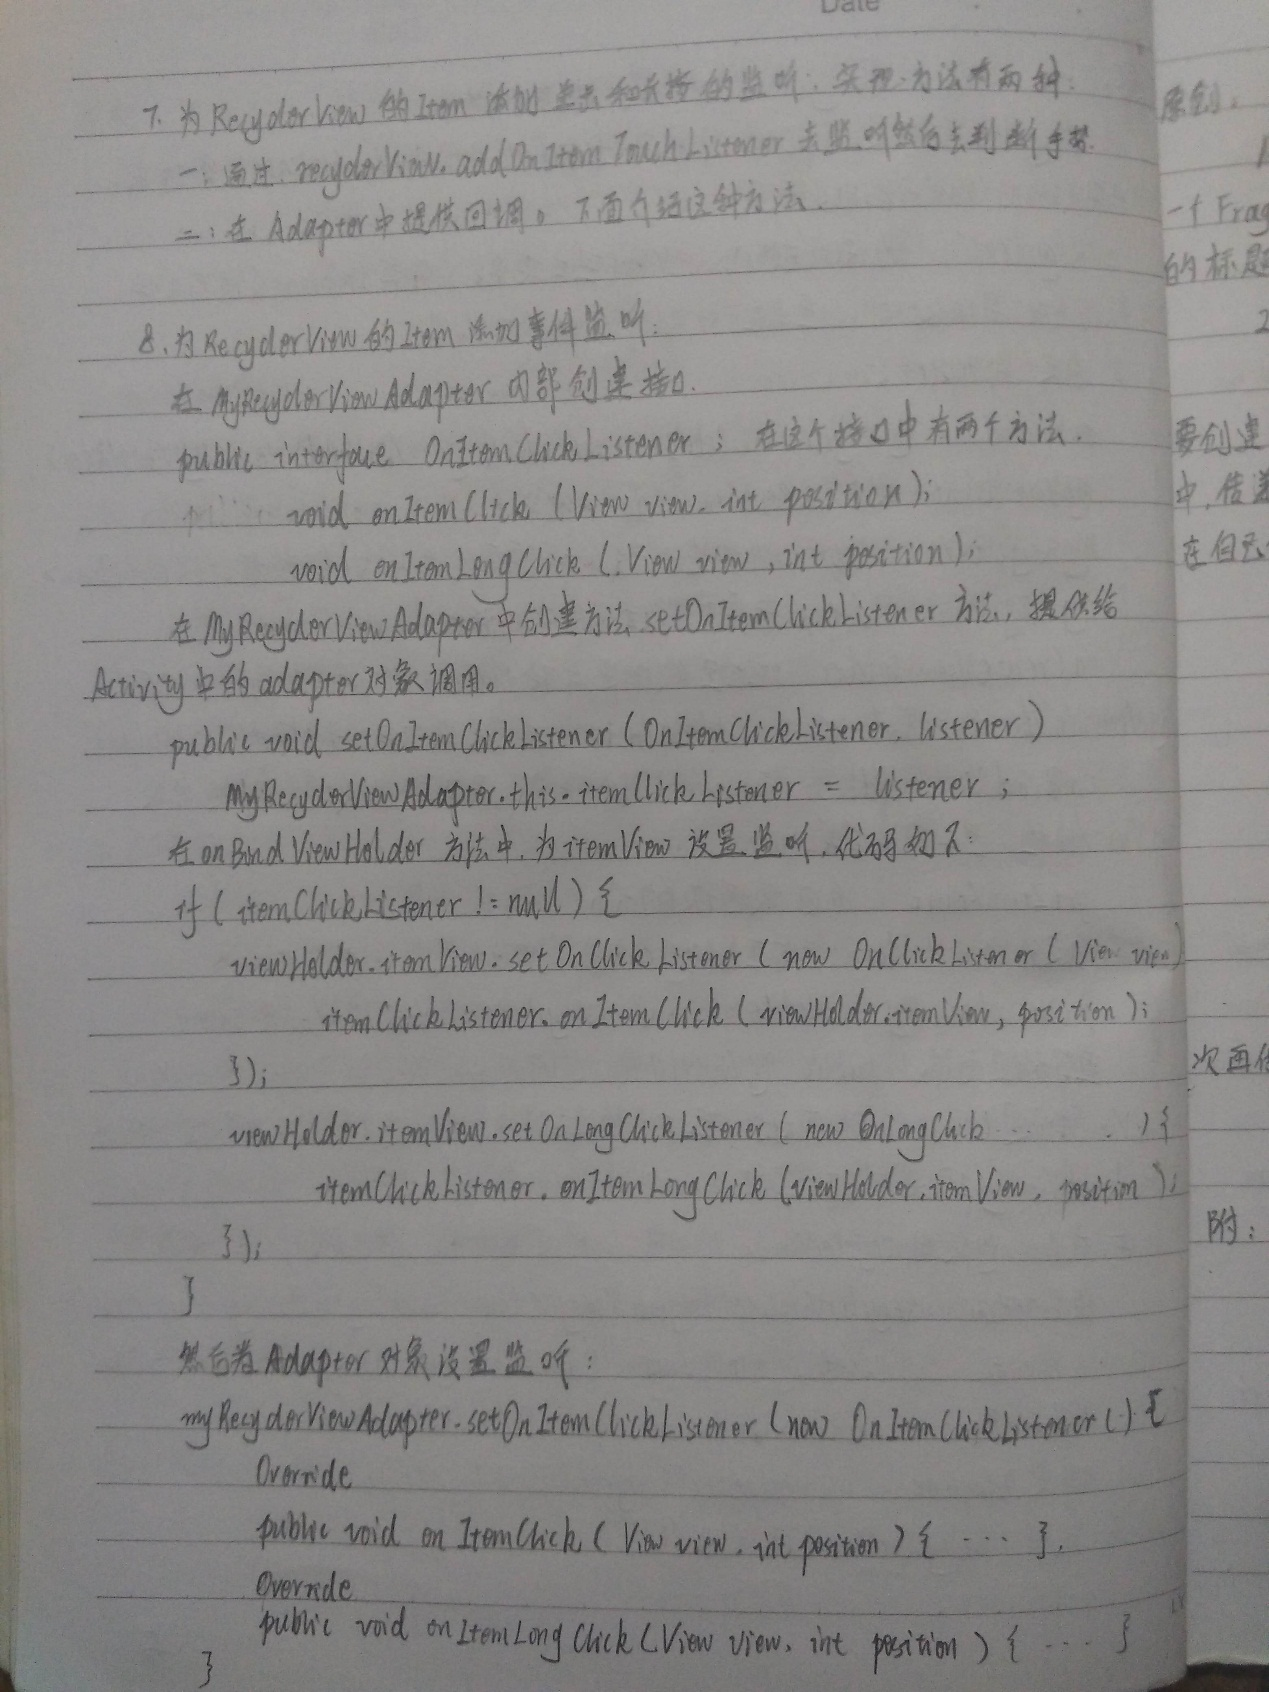 Date
7. 为 RecyclerView 的 Item 添加 点击和长按的监听. 实现方法有两种:
一: 通过 recyclerView. addOnItemTouchListener 去监听然后去判断手势.
二: 在 Adapter中提供回调。下面介绍这种方法.
8. 为RecyclerView的Item 添加事件监听:
在 MyRecyclerViewAdapter 内部创建接口.
public interface OnItemClickListener ; 在这个接口中有两个方法.
void onItemClick (View view, int position);
void onItemLongClick (View view, int position);
在MyRecyclerViewAdapter中创建方法 setOnItemClickListener 方法, 提供给
Activity中的adapter对象调用。
public void setOnItemClickListener (OnItemClickListener listener)
MyRecyclerViewAdapter.this.itemClickListener = listener ;
在onBindViewHolder 方法中, 为itemView 设置监听, 代码如下:
if ( itemClickListener != null ) {
viewHolder.itemView.setOnClickListener ( new OnClickListener ( View view)
itemClickListener. onItemClick ( viewHolder.itemView, position );
});
viewHolder.itemView.setOnLongClickListener ( new OnLongClick ... . ) {
itemClickListener. onItemLongClick (viewHolder.itemView, position );
});
}
然后为Adapter 对象设置监听:
myRecyclerViewAdapter.setOnItemClickListener (new OnItemClickListener () {
Override
public void onItemClick ( View view, int position ) { ... }.
Override
public void onItemLongClick (View view, int position ) { ... }
}
一个 Frag
的标题
2
要创建
中, 传递
次再
附: